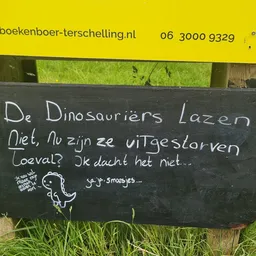 boekenboer-terschelling.nl 06 3000 9329
De Dinosauriërs Lazen
Niet, Nu zijn ze uitgestorven
Toeval? Ik dacht het niet...